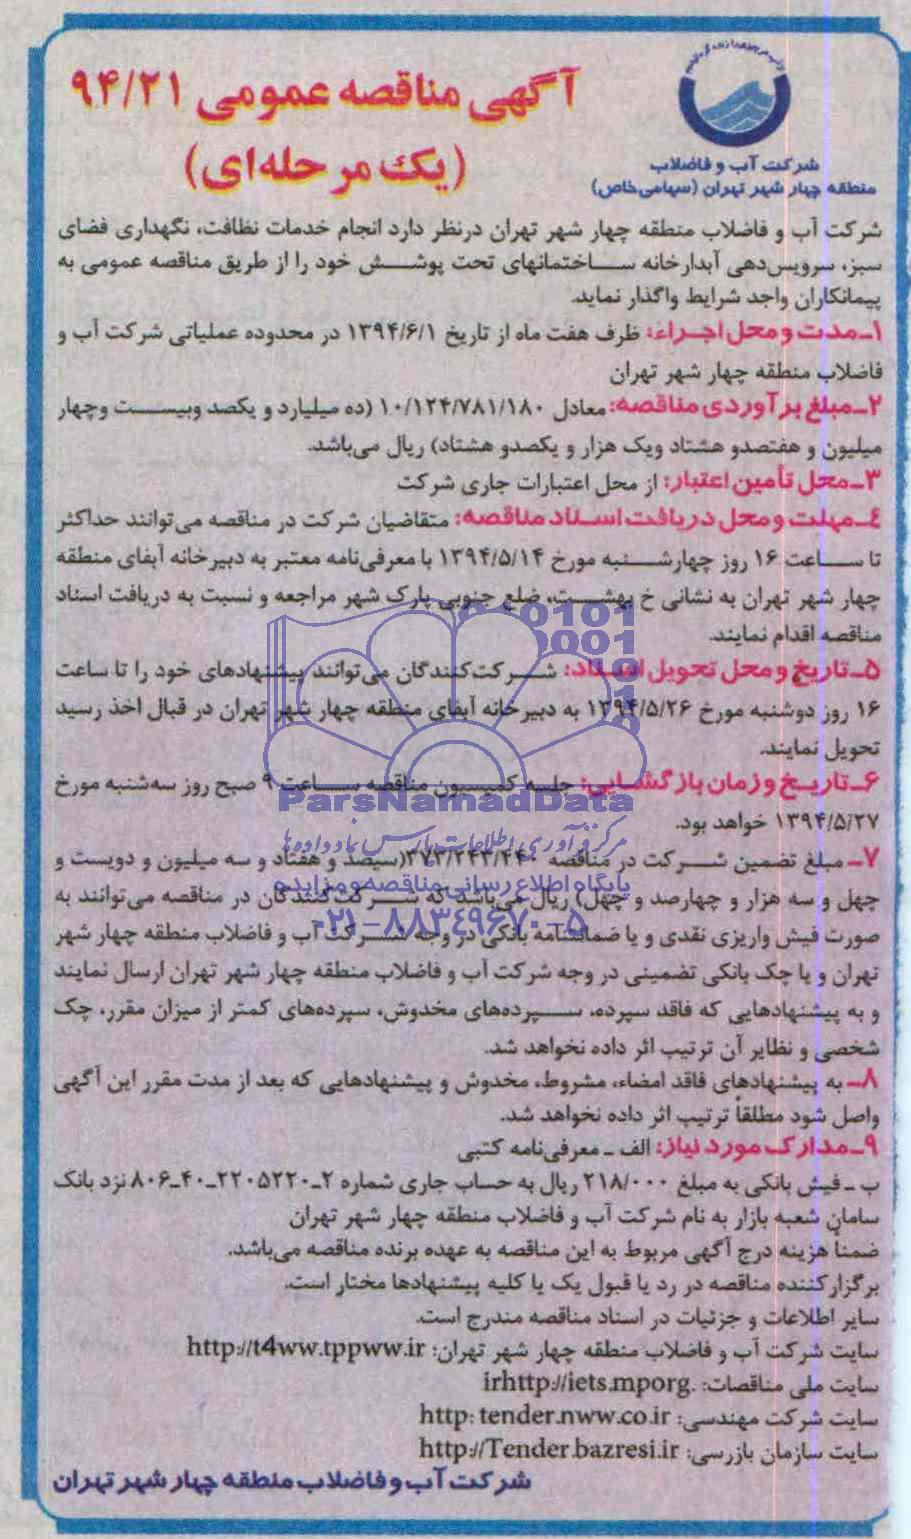 شرکت آب و فاضلاب
منطقه چهار شهر تهران (سهامی‌خاص)
آگهی مناقصه عمومی ۹۴/۲۱
(یک مرحله‌ای)
شرکت آب و فاضلاب منطقه چهار شهر تهران درنظر دارد انجام خدمات نظافت، نگهداری فضای
سبز، سرویس‌دهی آبدارخانه ساختمانهای تحت پوشش خود را از طریق مناقصه عمومی به
پیمانکاران واجد شرایط واگذار نماید.
۱ـ مدت و محل اجراء: ظرف هفت ماه از تاریخ ۱۳۹۴/۶/۱ در محدوده عملیاتی شرکت آب و
فاضلاب منطقه چهار شهر تهران
۲ـ مبلغ برآوردی مناقصه: معادل ۱۰/۱۲۴/۷۸۱/۱۸۰ (ده میلیارد و یکصد وبیست وچهار
میلیون و هفتصدو هشتاد ویک هزار و یکصدو هشتاد) ریال می‌باشد.
۳ـ محل تأمین اعتبار: از محل اعتبارات جاری شرکت
٤ـ مهلت و محل دریافت اسناد مناقصه: متقاضیان شرکت در مناقصه می‌توانند حداکثر
تا ساعت ۱۶ روز چهارشنبه مورخ ۱۳۹۴/۵/۱۴ با معرفی‌نامه معتبر به دبیرخانه آبفای منطقه
چهار شهر تهران به نشانی خ بهشت، ضلع جنوبی پارک شهر مراجعه و نسبت به دریافت اسناد
مناقصه اقدام نمایند.
۵ـ تاریخ و محل تحویل اسناد: شرکت‌کنندگان می‌توانند پیشنهادهای خود را تا ساعت
۱۶ روز دوشنبه مورخ ۱۳۹۴/۵/۲۶ به دبیرخانه آبفای منطقه چهار شهر تهران در قبال اخذ رسید
تحویل نمایند.
۶ـ تاریخ و زمان بازگشایی: جلسه کمیسیون مناقصه ساعت ۹ صبح روز سه‌شنبه مورخ
۱۳۹۴/۵/۲۷ خواهد بود.
ParsNamadData
مرکز فرآوری اطلاعات پارس نماد داده‌ها
۷ـ مبلغ تضمین شرکت در مناقصه ۳۷۳/۲۴۳/۴۴۰ (سیصد و هفتاد و سه میلیون و دویست و
پایگاه اطلاع رسانی مناقصه و مزایده
چهل و سه هزار و چهارصد و چهل) ریال می‌باشد که شرکت‌کنندگان در مناقصه می‌توانند به
۰۲۱-۸۸۳۴۹۶۷۰-۵
صورت فیش واریزی نقدی و یا ضمانتنامه بانکی در وجه شرکت آب و فاضلاب منطقه چهار شهر
تهران و یا چک بانکی تضمینی در وجه شرکت آب و فاضلاب منطقه چهار شهر تهران ارسال نمایند
و به پیشنهادهایی که فاقد سپرده، سپرده‌های مخدوش، سپرده‌های کمتر از میزان مقرر، چک
شخصی و نظایر آن ترتیب اثر داده نخواهد شد.
۸ـ به پیشنهادهای فاقد امضاء، مشروط، مخدوش و پیشنهادهایی که بعد از مدت مقرر این آگهی
واصل شود مطلقاً ترتیب اثر داده نخواهد شد.
۹ـ مدارک مورد نیاز: الف ـ معرفی‌نامه کتبی
ب ـ فیش بانکی به مبلغ ۲۱۸/۰۰۰ ریال به حساب جاری شماره ۲ـ۲۲۰۵۲۲۰ـ۴۰ـ۸۰۶ نزد بانک
سامان شعبه بازار به نام شرکت آب و فاضلاب منطقه چهار شهر تهران
ضمناً هزینه درج آگهی مربوط به این مناقصه به عهده برنده مناقصه می‌باشد.
برگزارکننده مناقصه در رد یا قبول یک یا کلیه پیشنهادها مختار است.
سایر اطلاعات و جزئیات در اسناد مناقصه مندرج است.
سایت شرکت آب و فاضلاب منطقه چهار شهر تهران: http://t4ww.tppww.ir
سایت ملی مناقصات: irhttp://iets.mporg.
سایت شرکت مهندسی: http: tender.nww.co.ir
سایت سازمان بازرسی: http://Tender.bazresi.ir
شرکت آب و فاضلاب منطقه چهار شهر تهران